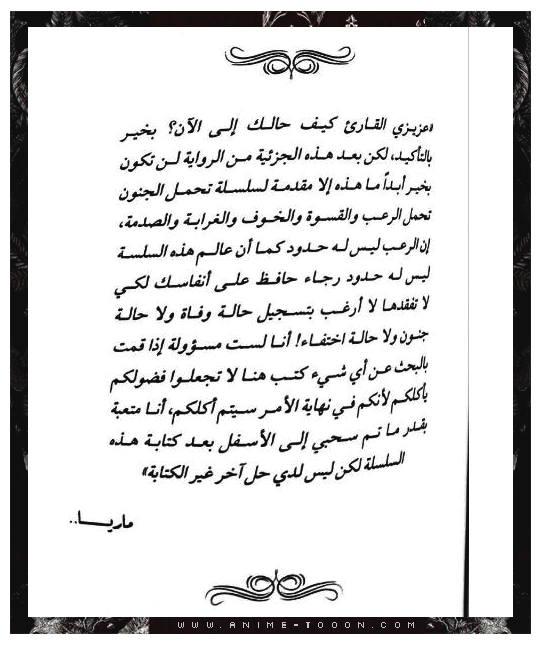 «عزيزي القارئ كيف حالك إلى الآن؟ بخير
بالتأكيد، لكن بعد هذه الجزئية من الرواية لن تكون
بخير أبداً ما هذه إلا مقدمة لسلسلة تحمل الجنون
تحمل الرعب والقسوة والخوف والغرابة والصدمة،
إن الرعب ليس له حدود كما أن عالم هذه السلسة
ليس له حدود رجاء حافظ على أنفاسك لكي
لا تفقدها لا أرغب بتسجيل حالة وفاة ولا حالة
جنون ولا حالة اختفاء! أنا لست مسؤولة إذا قمت
بالبحث عن أي شيء كتب هنا لا تجعلوا فضولكم
يأكلكم لأنكم في نهاية الأمر سيتم أكلكم، أنا متعبة
بقدر ما تم سحبي إلى الأسفل بعد كتابة هذه
السلسلة لكن ليس لدي حل آخر غير الكتابة»
ماريا..
WWW.ANIME-TOOON.COM